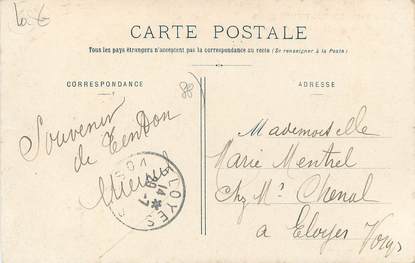 10 €
CARTE POSTALE
Tous les pays étrangers n'acceptent pas la correspondance au recto (Se renseigner à la Poste)
CORRESPONDANCE
ADRESSE
88
Souvenir
de Tendon
Mademoiselle
Marie Mentrel
Chz Mr Chenal
a Eloyes Vosges
ELOYES
VOSGES
14
20-7